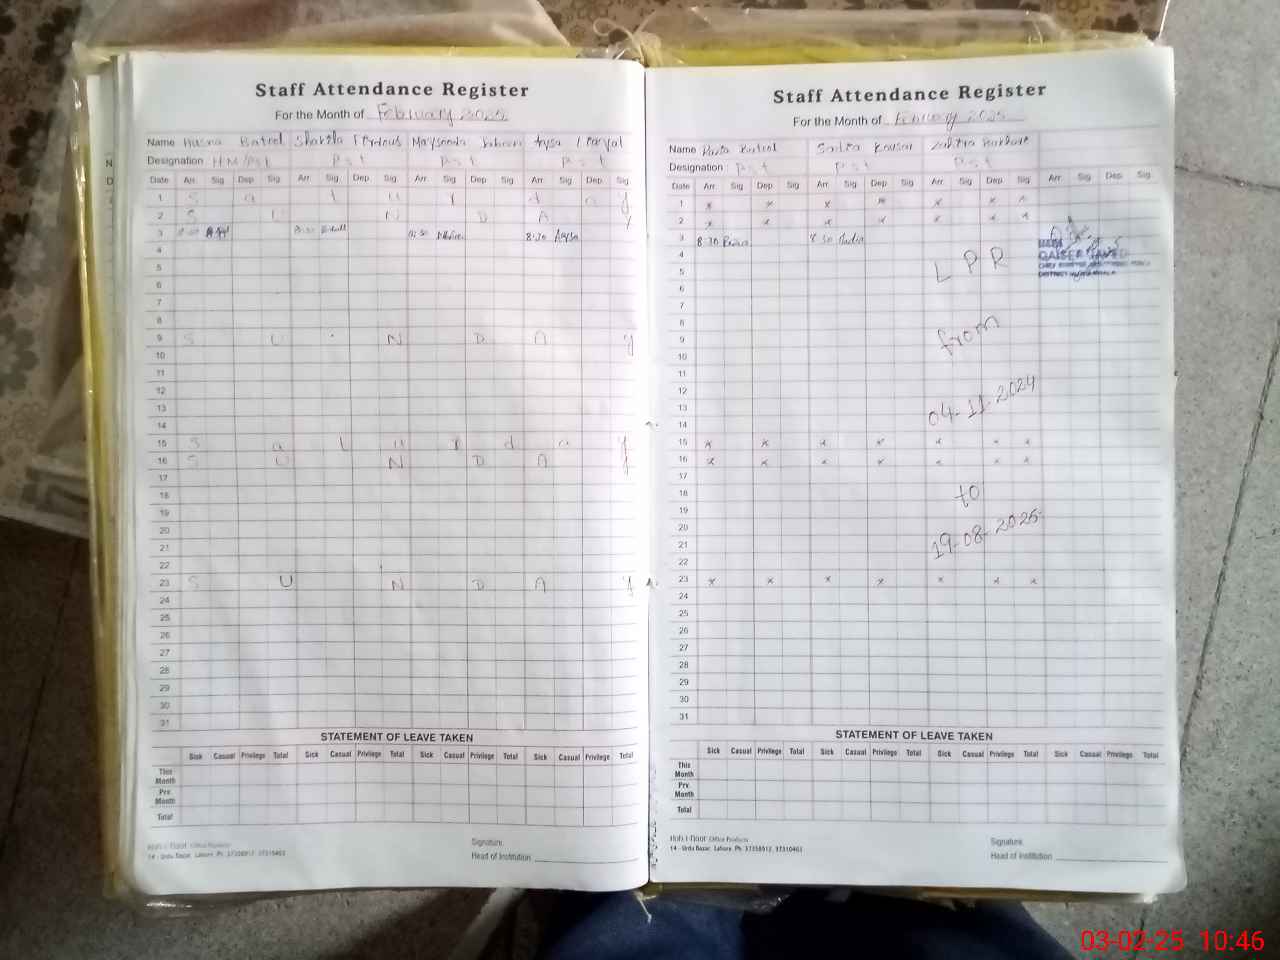 Staff Attendance Register
For the Month of February 2025
Name Husna Batool Shakila Firdous Maysoona Jabeen Aysa Maryal
Designation HM/Pst Pst Pst Pst
Date Arr. Sig Dep. Sig Arr. Sig. Dep. Sig. Arr. Sig. Dep Sig. Arr. Sig. Dep. Sig.
1 S a t u r d a y
2 S U N D A y
3 8:30 8:30 8:30 Aysa
4
5
6
7
8
9 S U N D A y
10
11
12
13
14
15 S a t u r d a y
16 S U N D A y
17
18
19
20
21
22
23 S U N D A y
24
25
26
27
28
29
30
31
STATEMENT OF LEAVE TAKEN
Sick Casual Privilege Total Sick Casual Privilege Total Sick Casual Privilege Total Sick Casual Privilege Total
This Month
Prv. Month
Total
Koh-i-Noor Office Products
14 - Urdu Bazar, Lahore. Ph: 37358912, 37310463
Signature
Head of Institution
Staff Attendance Register
For the Month of February 2025
Name Batool Kousar
Designation Pst Pst Pst
Date Arr. Sig Dep. Sig Arr. Sig. Dep. Sig. Arr. Sig. Dep. Sig. Arr. Sig. Dep. Sig.
1 x x x x x x x
2 x x x x x x x
3 8:30 8:30
4
5 L P R
6
7
8
9 from
10
11
12
13 04-11-2024
14
15 x x x x x x x
16 x x x x x x x
17
18 to
19
20
21 19-08-2025
22
23 x x x x x x x
24
25
26
27
28
29
30
31
STATEMENT OF LEAVE TAKEN
Sick Casual Privilege Total Sick Casual Privilege Total Sick Casual Privilege Total Sick Casual Privilege Total
This Month
Prv. Month
Total
Koh-i-Noor Office Products
14 - Urdu Bazar, Lahore. Ph: 37358912, 37310463
Signature
Head of Institution
03-02-25 10:46